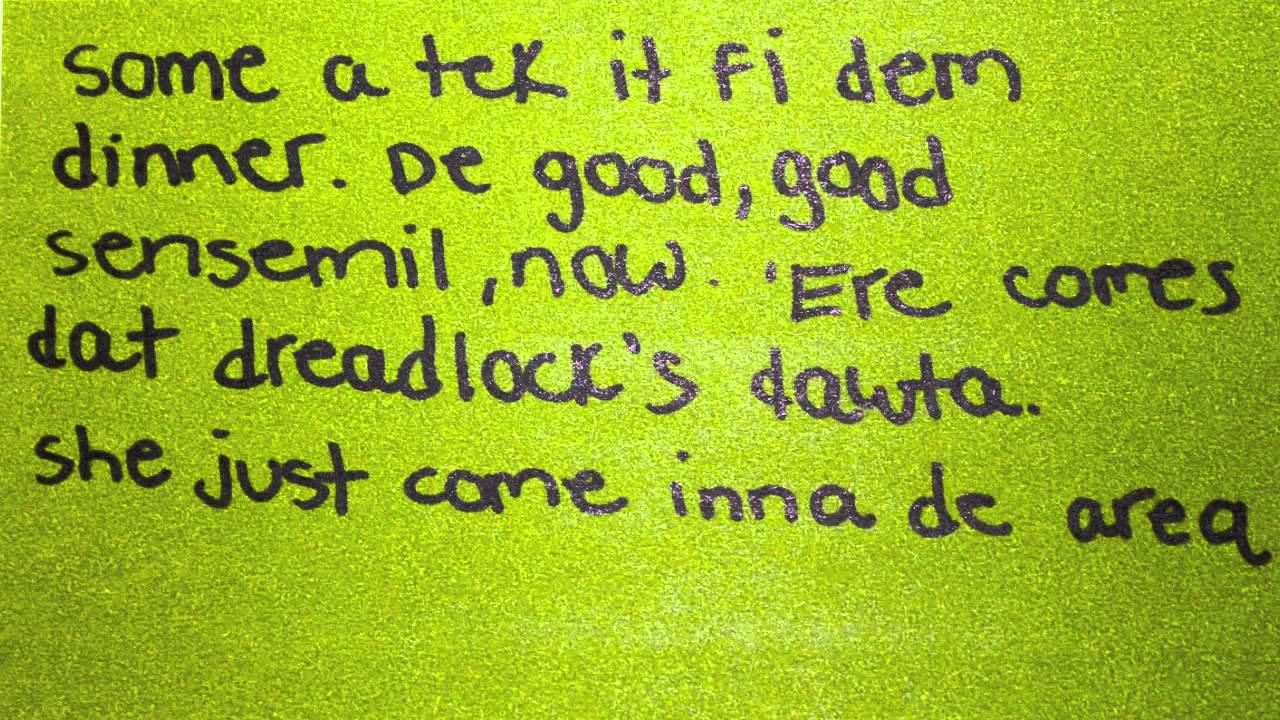 some a tek it fi dem
dinner. De good, good
sensemil, now. 'Ere comes
dat dreadlock's dawta.
she just come inna de area